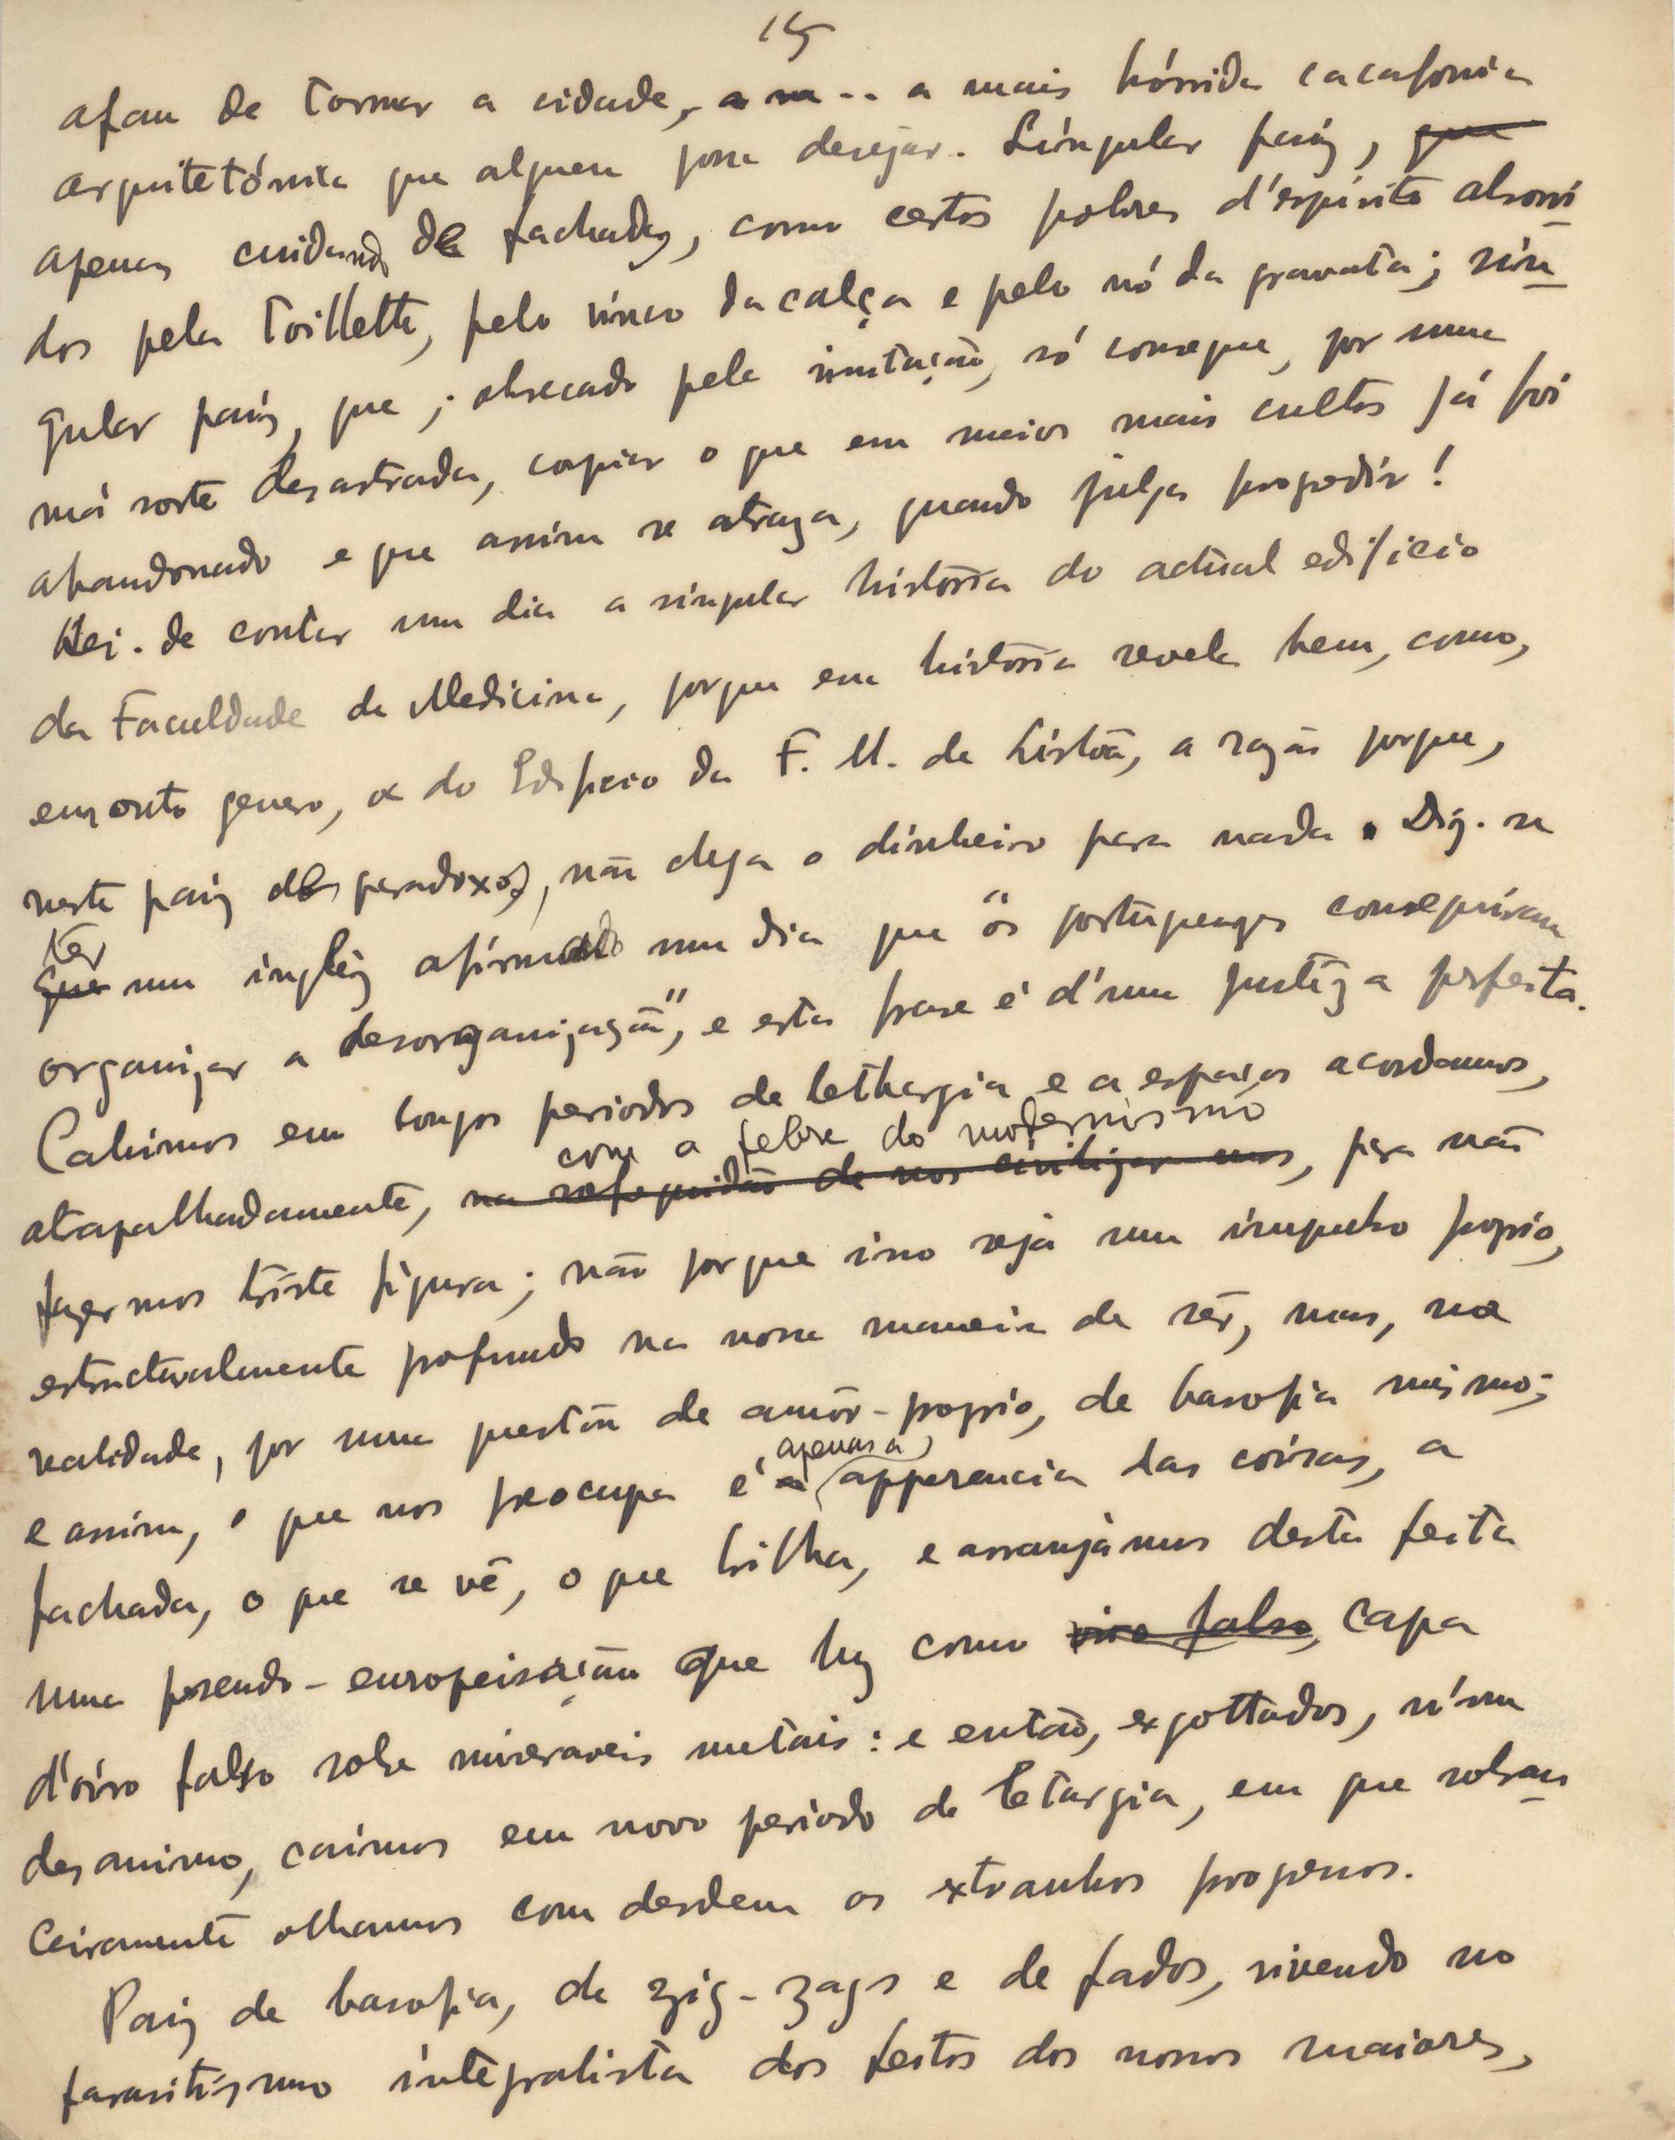 15
afan de tornar a cidade, a ma.. a mais hórrida cacafonia
arquitetónica que alguem possa desejar. Singular paiz, que
apenas cuidando de fachadas, como certos pobres d'espirito absorvi
dos pela toillette, pelo vinco da calça e pelo nó da gravata; sin-
gular paiz, que, obsecado pela imitação, só consegue, por uma
má sorte desastrada, copiar o que em meios mais cultos já foi
abandonado e que assim se atraza, quando julga progredir!
Hei-de contar um dia a singular história do actual edificio
da Faculdade de Medicina, porque essa história revela bem, como,
em outro genero, a do Edificio da F. M. de Lisbôa, a razão porque,
neste paiz de paradoxos, não chega o dinheiro para nada. Diz-se
ter
que um inglêz afirmado um dia que "os portuguezes conseguiram
organizar a desorganização", e esta frase é d'uma justêza perfeita.
Cahimos em longos periodos de lethargia e a espaços acordamos,
com a febre do modernismo
atrapalhadamente, na sofreguidão de nos civilizarmos, para não
fazermos triste figura; não porque isso seja um impulso proprio,
estructuralmente profundo na nossa maneira de sêr, mas, na
realidade, por uma questão de amôr-proprio, de basofia mesmo;
apenas a
e assim, o que nos preocupa é a apparencia das coisas, a
fachada, o que se vê, o que brilha, e arranjâmos desta feita
uma pseudo-europeisação que luz como oiro falso, capa
d'oiro falso sobre miseraveis metais: e então, exgottados, n'um
desanimo, caímos em novo periodo de letargia, em que sobran-
ceiramente olhamos com desdem os extranhos progressos.
Paiz de basofia, de zig-zags e de fados, vivendo no
parasitismo integralista dos feitos dos nossos maiores,